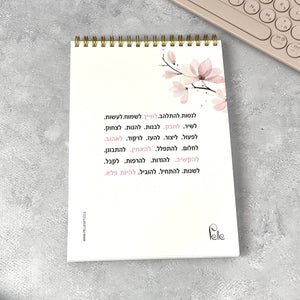 לנסות.להתלהב.לחייך.לשמוח.לעשות.
לשיר.לחבק.לבנות.להנות.לצחוק.
לפעול.ליצור.להעז.לרקוד.לאהוב.
לחלום.להתפלל.להאמין.להתבונן.
להקשיב.להודות.להרפות.לקבל.
לשנות.להתחיל.להוביל.להיות פלא.